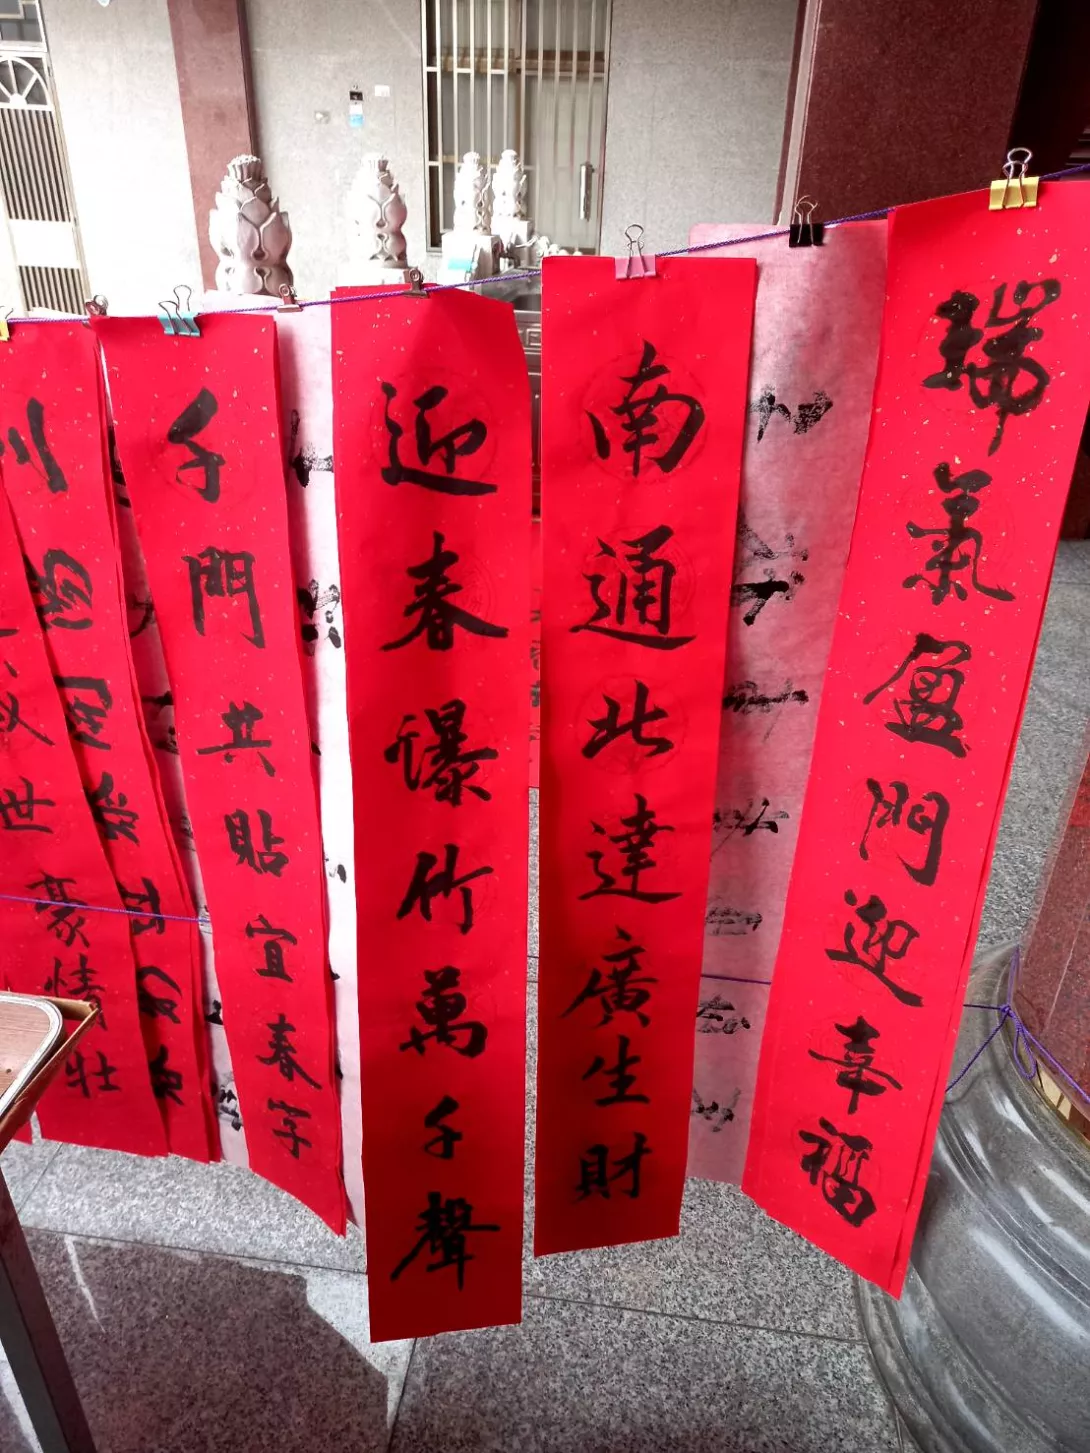 瑞氣盈門迎幸福
南通北達廣生財
迎春爆竹萬千聲
千門共貼宜春字
世豪情壯